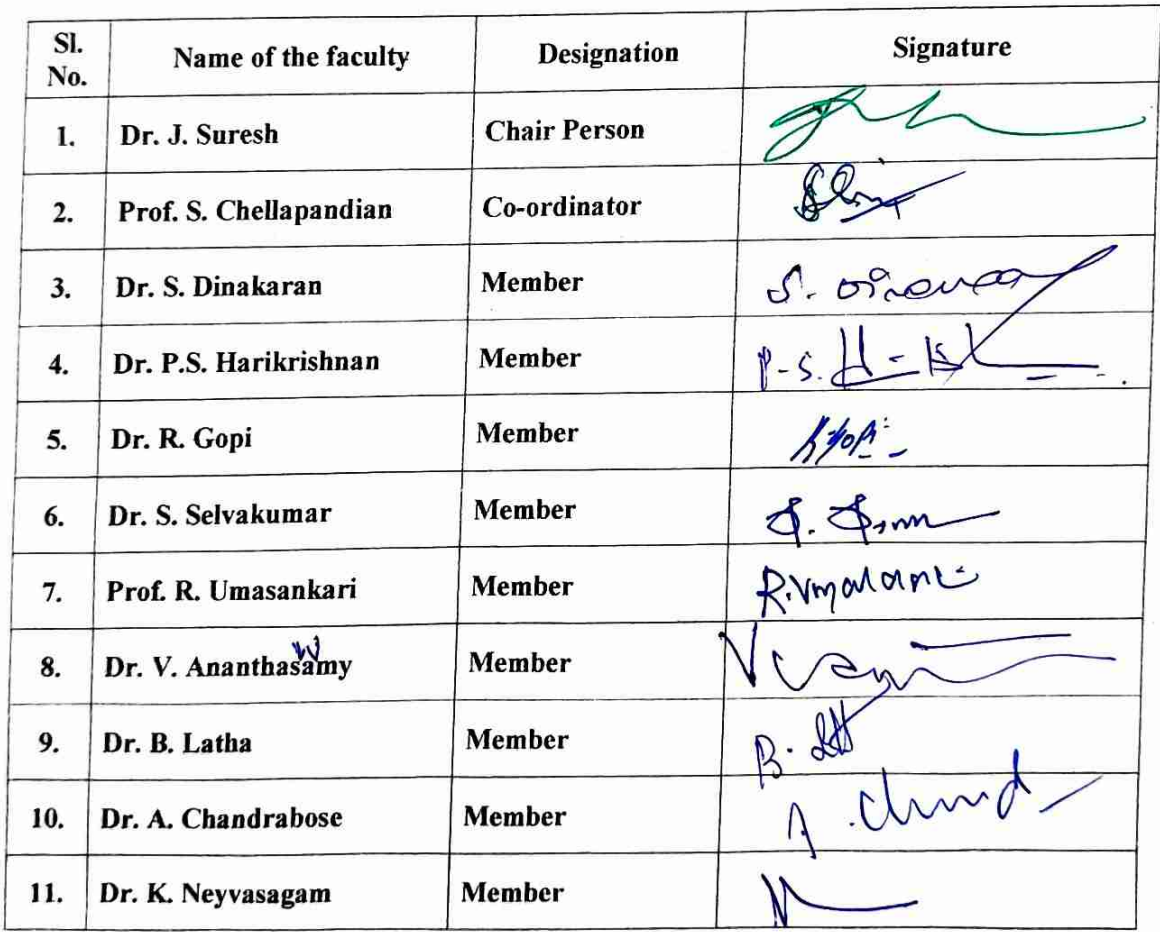 Sl. No. Name of the faculty Designation Signature
1. Dr. J. Suresh Chair Person
2. Prof. S. Chellapandian Co-ordinator
3. Dr. S. Dinakaran Member S.
4. Dr. P.S. Harikrishnan Member P.S. H
5. Dr. R. Gopi Member
6. Dr. S. Selvakumar Member
7. Prof. R. Umasankari Member R.
8. Dr. V. Ananthasamy Member
9. Dr. B. Latha Member B.
10. Dr. A. Chandrabose Member A. Chand
11. Dr. K. Neyvasagam Member